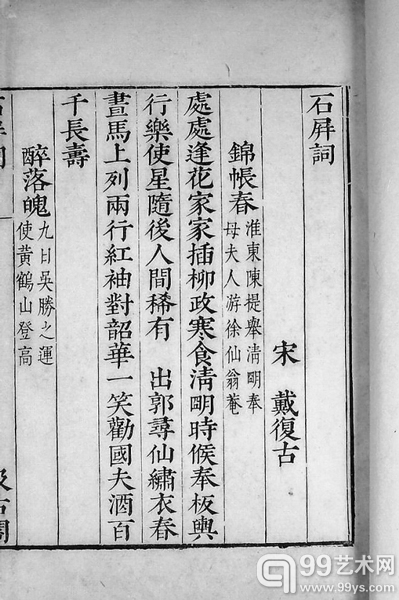 石屛詞
宋　戴復古
錦帳春
淮東陳提舉淸明奉
母夫人游徐仙翁菴
處處逢花家家插柳政寒食淸明時候奉板輿
行樂使星隨後人間稀有　出郭尋仙繡衣春
晝馬上列兩行紅袖對韶華一笑勸國夫酒百
千長壽
醉落魄
九日吳勝之運
使黃鶴山登高
99艺术网
www.99ys.com